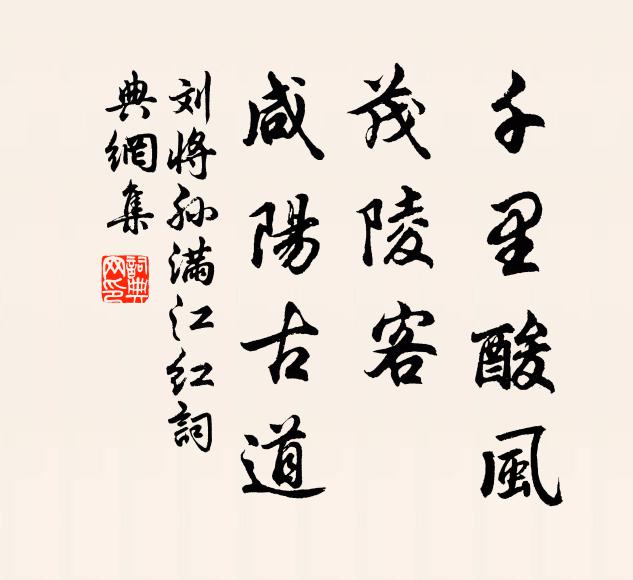 千里酸風
茂陵客
咸陽古道
刘将孙满江红詞
典網集
詞典网印